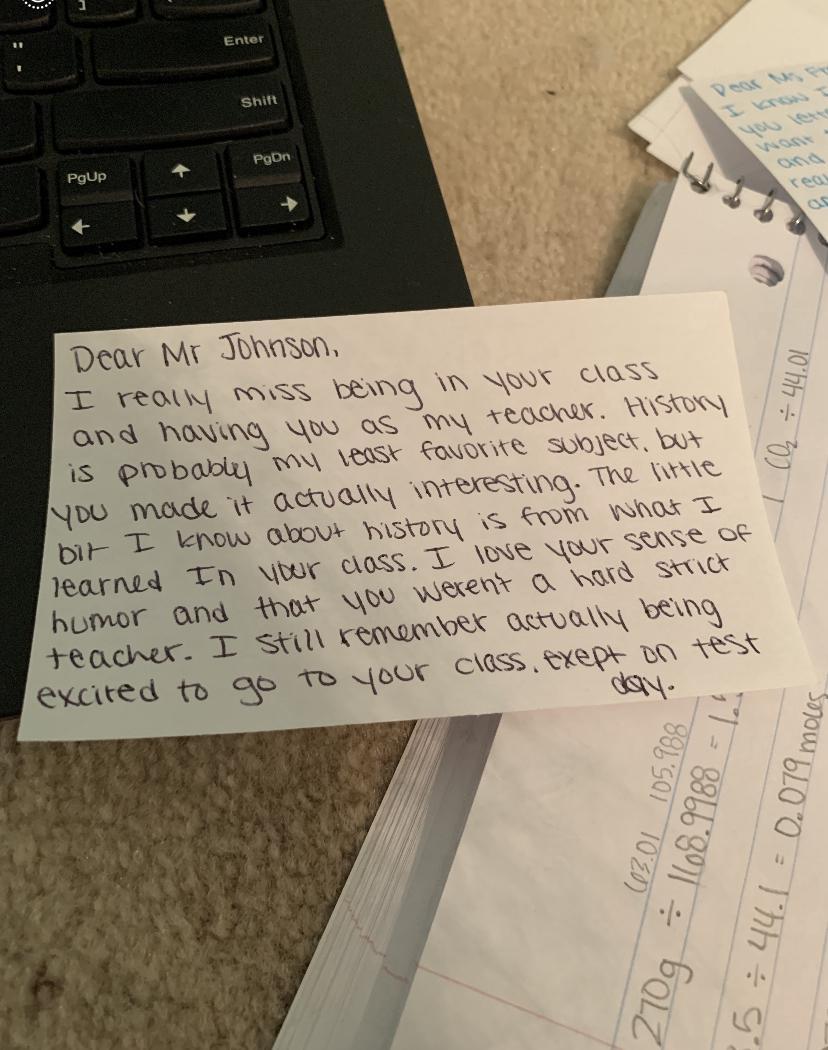 ]
"
'
Enter
Shift
PgUp
PgDn
Dear Mr Johnson,
I really miss being in your class
and having you as my teacher. History
is probably my least favorite subject, but
you made it actually interesting. The little
bit I know about history is from what I
learned In your class. I love your sense of
humor and that you werent a hard strict
teacher. I still remember actually being
excited to go to your class, exept on test
day.
Dear Ms
I know I
you
want
and
CO₂ ÷ 44.01
105.988
270g ÷ 168.9988 =
.5 ÷ 44.1 = 0.079 moles